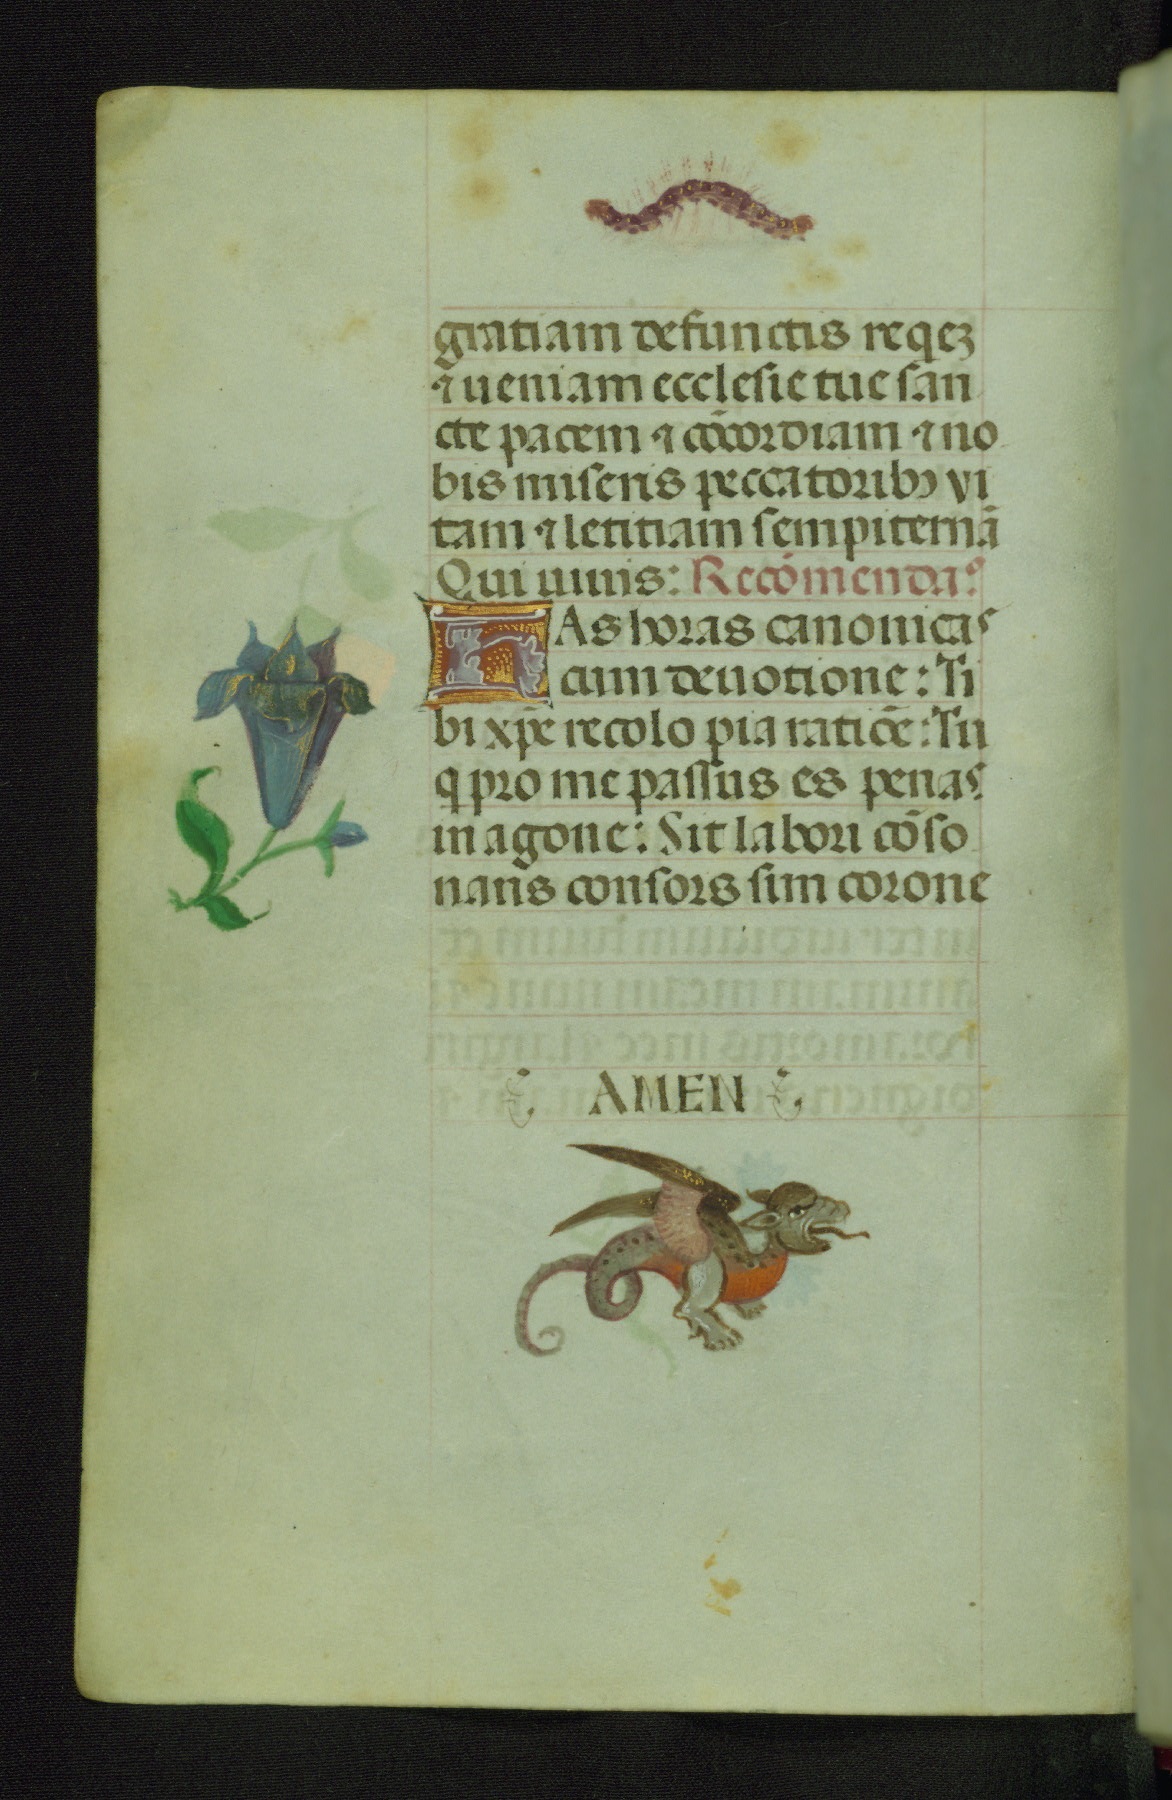 gratiam defunctis reqeꝫ
⁊ ueniam ecclesie tue san
cte pacem ⁊ cōcordiam ⁊ no
bis miseris peccatoribꝰ vi
tam ⁊ letitiam sempiternā
Qui uiuis: Recōmendaº
HAs horas canonicas
cum deuotione: Ti
bi xp̄e recolo pia ratiōe: Tu
q̇ pro me passus es penas
in agone: Sit labori cōso
nans consors sim corone
AMEN